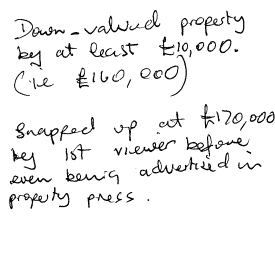 Down-valued property
by at least £10,000.
(ie £160,000)
Snapped up at £170,000
by 1st viewer before
even being advertised in
property press.